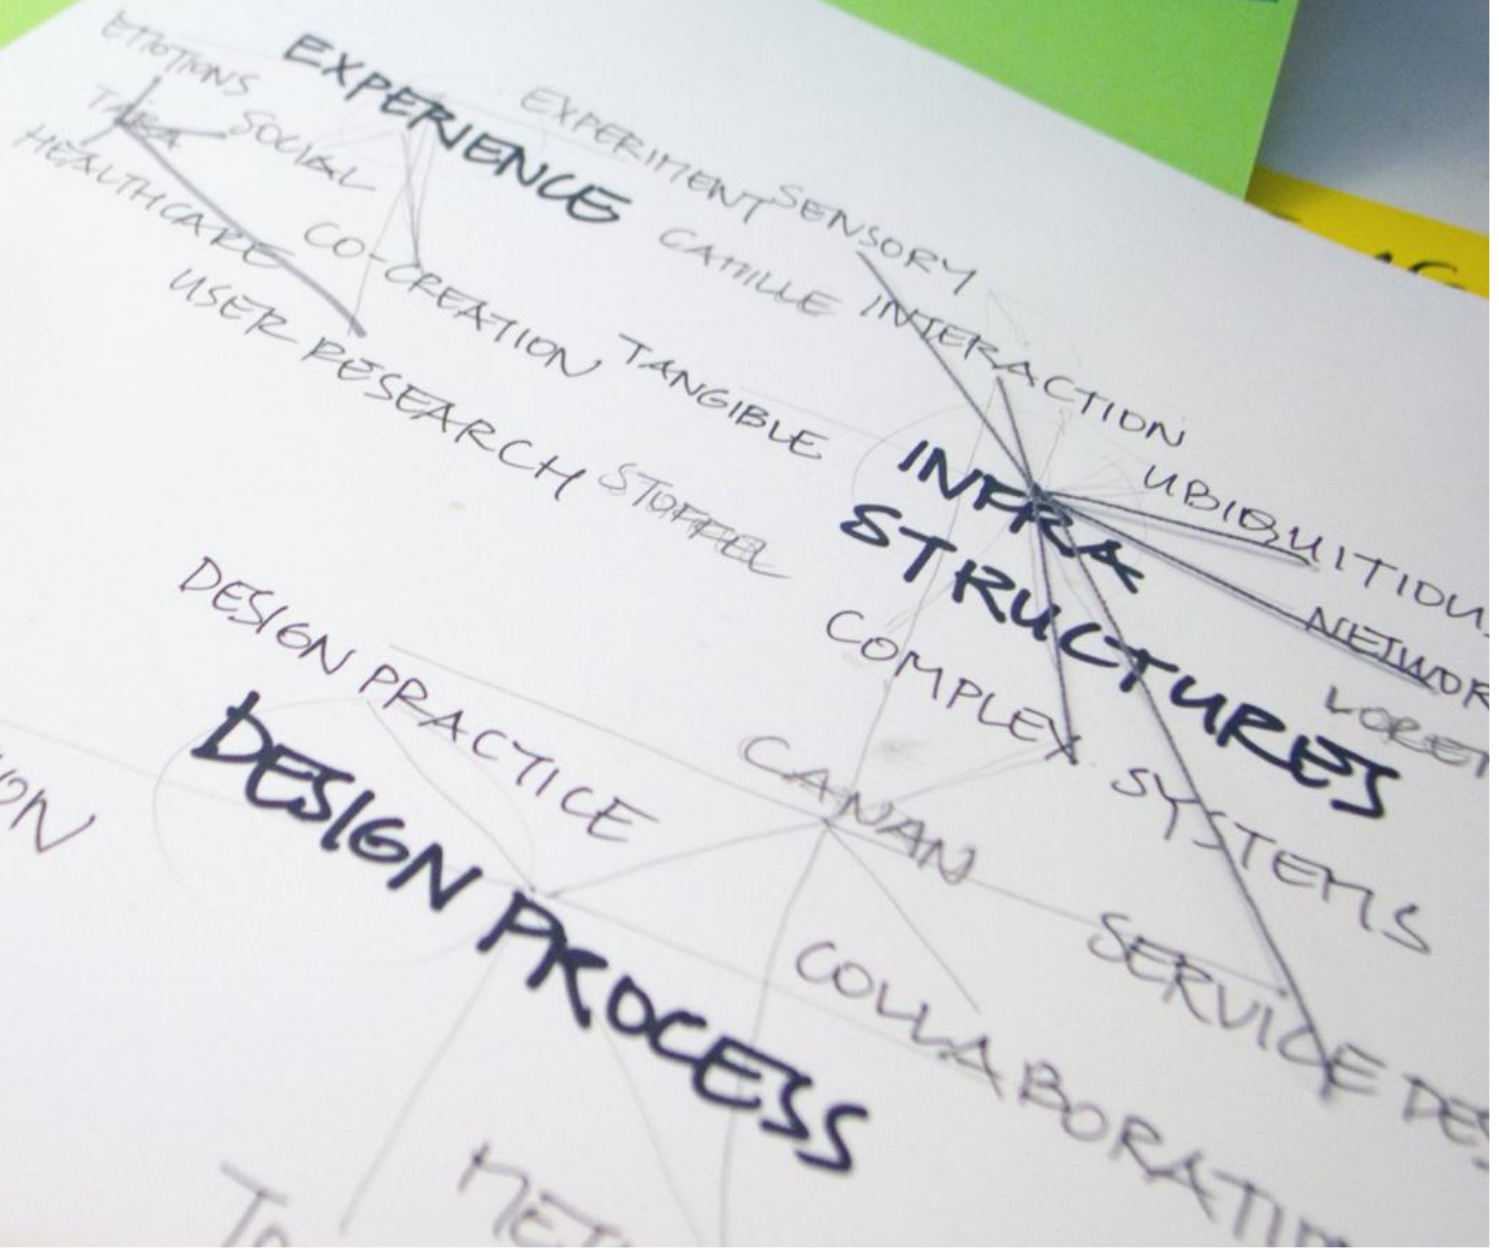 EMOTIONS
EXPERIENCE
EXPERIMENT
SENSORY
TARA
SOCIAL
HEALTHCARE
CO-CREATION
CAMILLE
INTERACTION
USER RESEARCH
TANGIBLE
STOFFEL
INFRA
STRUCTURES
UBIQUITIOU
NETWOR
LORET
COMPLEX SYSTEMS
DESIGN PRACTICE
DESIGN PROCESS
CANAN
SERVICE DES
COLLABORATI
MET
TO